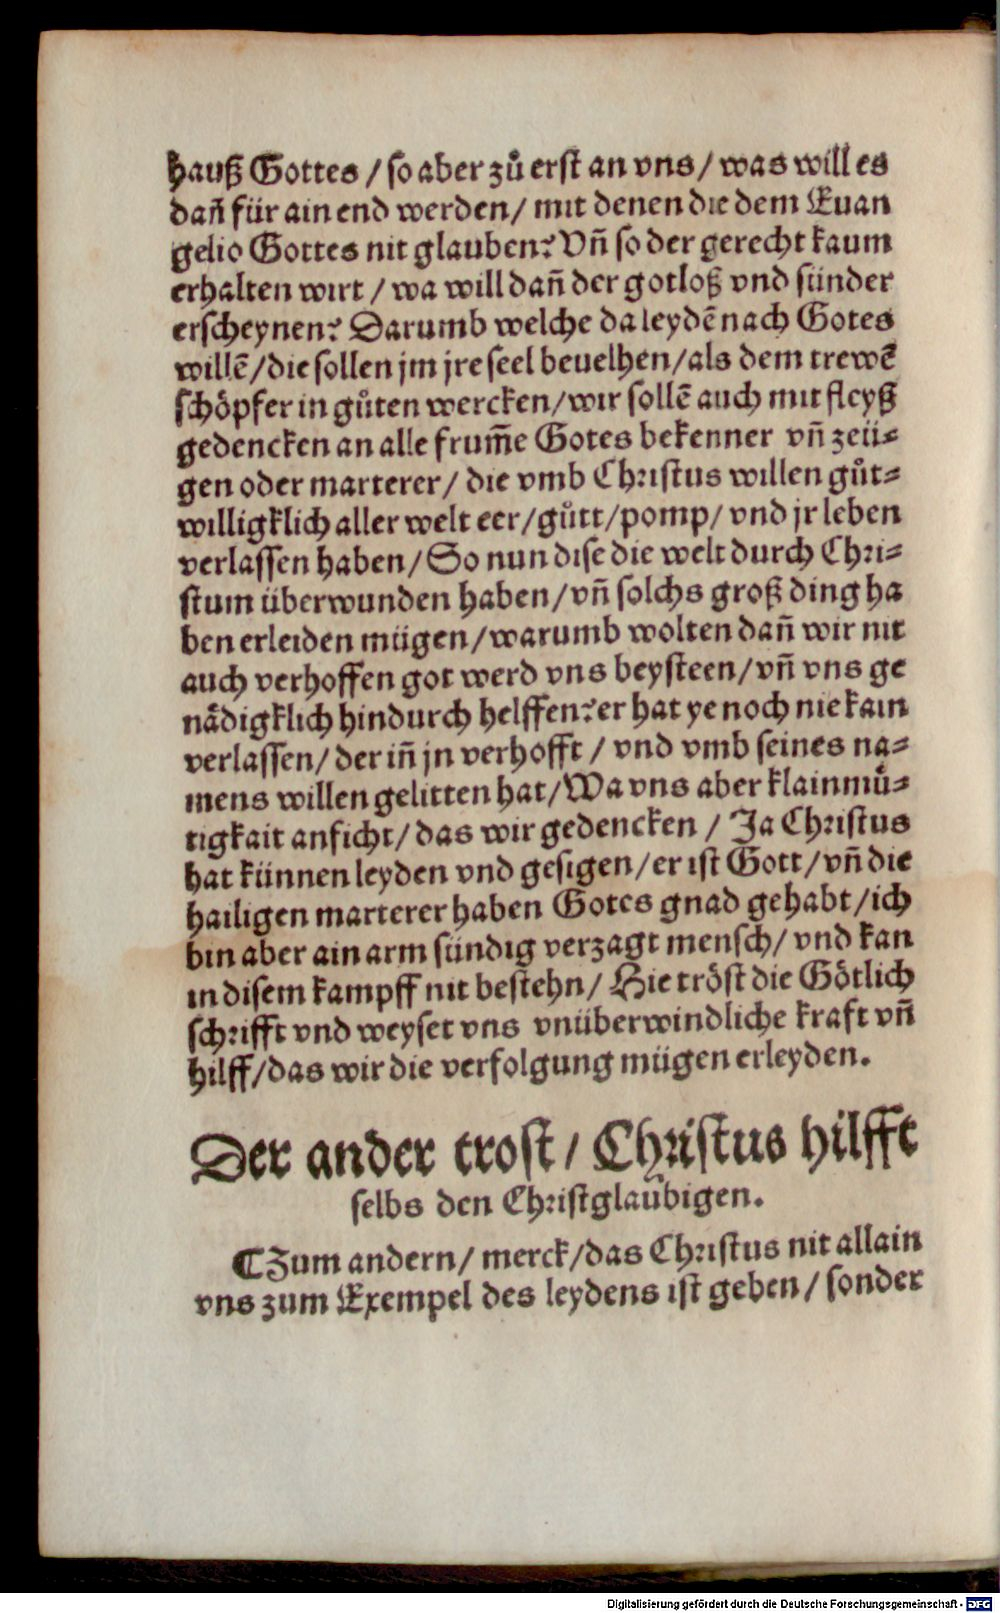 hauß Gottes / so aber zů erst an vns / was will es
dañ für ain end werden / mit denen die dem Euan
gelio Gottes nit glauben? Vñ so der gerecht kaum
erhalten wirt / wa will dañ der gotloß vnd sünder
erscheynen? Darumb welche da leydē nach Gotes
willē / die sollen jm jre seel beuelhen / als dem trewē
schöpfer in gůten wercken / wir sollē auch mit fleyß
gedencken an alle frum̄e Gotes bekenner vñ zeü⸗
gen oder marterer / die vmb Christus willen gůt⸗
willigklich aller welt eer / gůtt / pomp / vnd jr leben
verlassen haben / So nun dise die welt durch Chri⸗
stum überwunden haben / vñ solchs groß ding ha
ben erleiden mügen / warumb wolten dañ wir nit
auch verhoffen got werd vns beysteen / vñ vns ge
nådigklich hindurch helffen? er hat ye noch nie kain
verlassen / der iñ jn verhofft / vnd vmb seines na⸗
mens willen gelitten hat / Wa vns aber klainmů⸗
tigkait anficht / das wir gedencken / Ja Christus
hat künnen leyden vnd gesigen / er ist Gott / vñ die
hailigen marterer haben Gotes gnad gehabt / ich
bin aber ain arm sündig verzagt mensch / vnd kan
in disem kampff nit bestehn / Hie tröst die Götlich
schrifft vnd weyset vns vnüberwindliche kraft vñ
hilff / das wir die verfolgung mügen erleyden.
Der ander trost / Christus hilfft
selbs den Christglaubigen.
¶Zum andern / merck / das Christus nit allain
vns zum Exempel des leydens ist geben / sonder
Digitalisierung gefördert durch die Deutsche Forschungsgemeinschaft - DFG